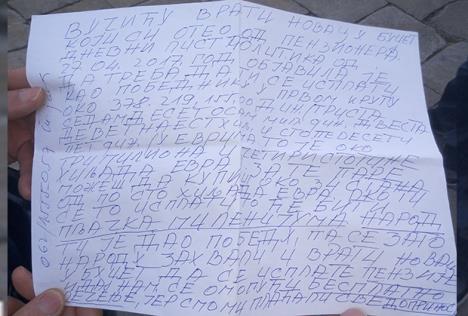 ВУЧИЋУ ВРАТИ НОВАЦ У БУЏЕТ
КОЈИ СИ ОТЕО ОД ПЕНЗИОНЕРА.
ДНЕВНИ ЛИСТ ПОЛИТИКА ОД
04. 2017. ГОД ОБЈАВИЛА ЈЕ
ДА ТРЕБА ДА ТИ СЕ ИСПЛАТИ
КАО ПОБЕДНИКУ У ПРВОМ КРУГУ
ОКО 378.219.
СЕДАМДЕСЕТ ОСАМ МИЛ. ДИН. ДВЕСТА
ДЕВЕТНАЕСТ И СТОПЕДЕСЕТ
ПЕТ ДИН. У ЕВРИМА ТО ЈЕ ОКО
ТРИ МИЛИОНА ЧЕТИРИСТОТИНЕ
ХИЉАДА ЕВРА. ЗА ТЕ ПАРЕ
МОЖЕШ ДА КУПИШ ОКО СТАНА
ОД ПО СТО ХИЉАДА ЕВРА. АКО ТИ
СЕ ТО ИСПЛАТИ ТО ЋЕ БИТИ
ПЉАЧКА МИЛЕНИЈУМА НАРОД
ТИ ЈЕ ДАО ПОБЕДУ, ПА СЕ ЗАТО
НАРОДУ ЗАХВАЛИ И ВРАТИ НОВАЦ
У БУЏЕТ ДА СЕ ИСПЛАТЕ ПЕНЗИЈЕ
И ДА НАМ СЕ ОМОГУЋИ БЕСПЛАТНО
ЛЕЧЕЊЕ, ЈЕР СМО МИ ПЛАЋАЛИ СВЕ ДОПРИНОСЕ